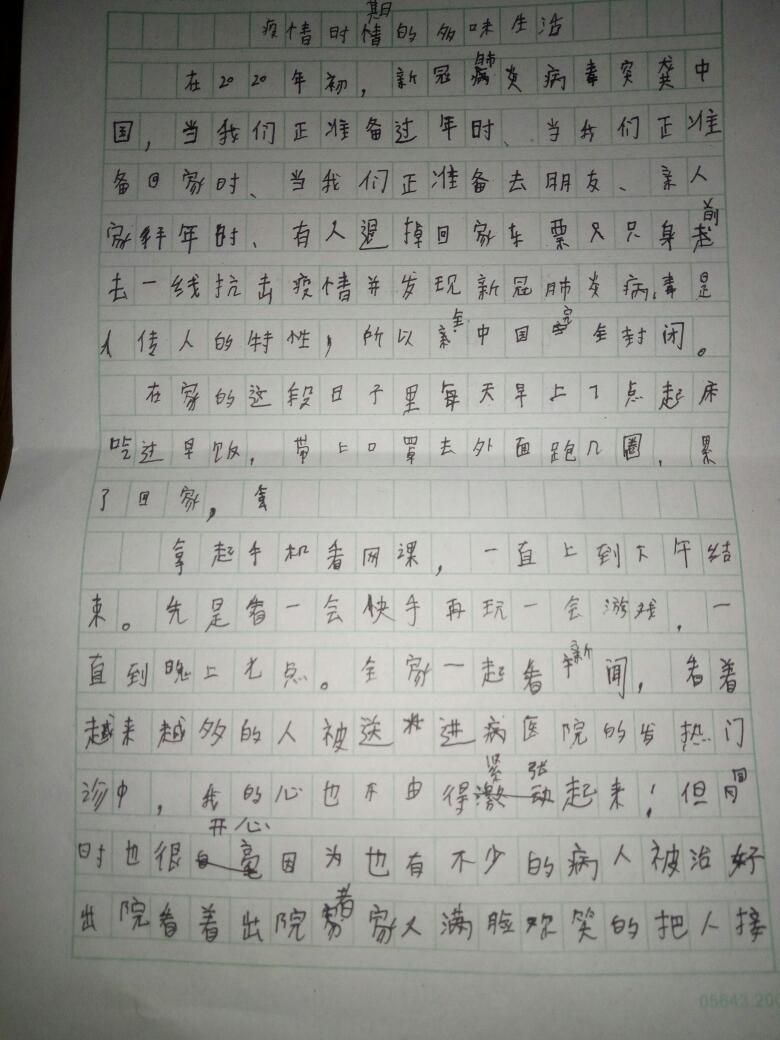 疫情时期的多味生活
在2020年初，新冠肺炎病毒突袭中
国，当我们正准备过年时、当我们正准
备回家时、当我们正准备去朋友、亲人
家拜年时、有人退掉回家车票只只身前
去一线抗击疫情并发现新冠肺炎病毒是
人传人的特性，所以全中国完全封闭。
在家的这段日子里每天早上7点起床
吃过早饭，带上口罩去外面跑几圈，累
了回家，
拿起手机看网课，一直上到下午结
束。先是看一会快手再玩一会游戏，一
直到晚上七点。全家一起看新闻，看着
越来越多的人被送进病医院的发热门
诊中，我的心也不由得紧张起来！但同
时也很开心因为也有不少的病人被治好
出院看着出院者家人满脸欢笑的把人接
05643.20